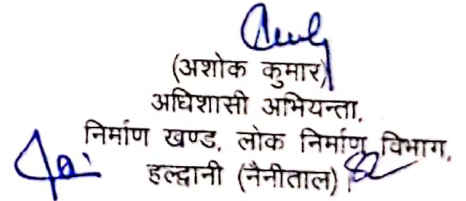 (अशोक कुमार)
अधिशासी अभियन्ता,
निर्माण खण्ड, लोक निर्माण विभाग,
हल्द्वानी (नैनीताल)